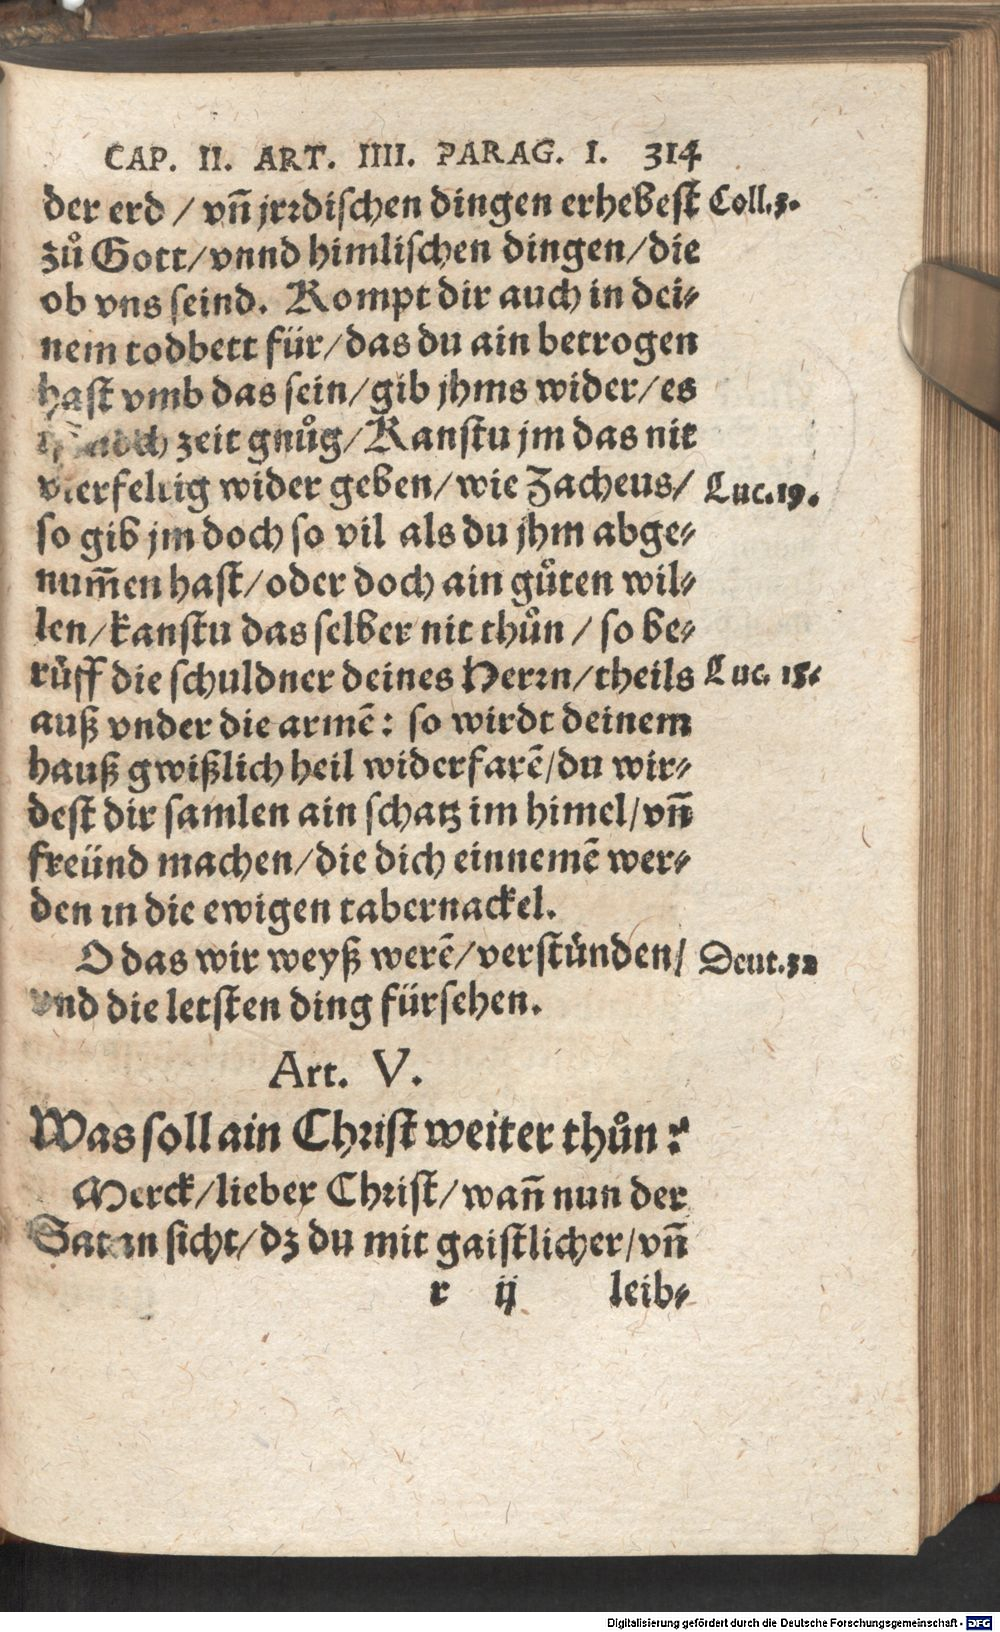 CAP. II. ART. IIII. PARAG. I. 314
der erd / vñ jrꝛdischen dingen erhebest Coll.3.
zů Gott/vnnd himlischen dingen/die
ob vns seind. Kompt dir auch in dei-
nem todbett für/das du ain betrogen
hast vmb das sein/gib jhms wider/es
zeit gnůg/Kanstu jm das nit
vierfeltig wider geben/wie Zacheus/ Luc.19.
so gib jm doch so vil als du jhm abge-
num̃en hast/oder doch ain gůten wil-
len/kanstu das selber nit thůn / so be-
rüff die schuldner deines Herꝛn/theils Luc. 15.
auß vnder die armẽ: so wirdt deinem
hauß gwißlich heil widerfarẽ/du wir-
dest dir samlen ain schatz im himel/vñ
freünd machen/die dich einnemẽ wer-
den in die ewigen tabernackel.
O das wir weyß werẽ/verstünden/ Deut.32
vnd die letsten ding fürsehen.
Art. V.
Was soll ain Chꝛist weiter thůn?
Merck/lieber Chꝛist/wañ nun der
Satan sicht/dz du mit gaistlicher/vñ
r ij leib-
Digitalisierung gefördert durch die Deutsche Forschungsgemeinschaft - DFG